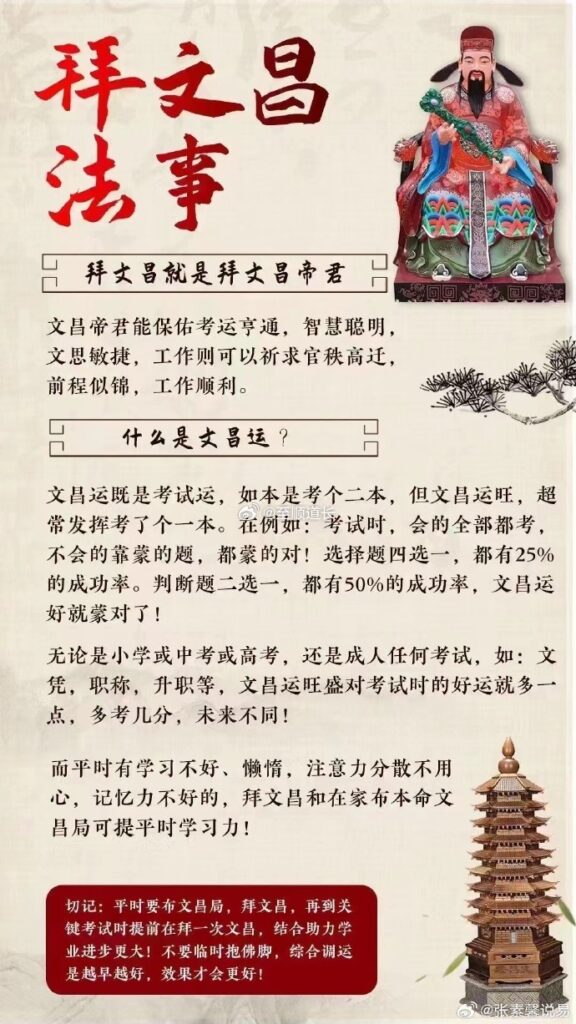 拜文昌
法事
拜文昌就是拜文昌帝君
文昌帝君能保佑考运亨通，智慧聪明，
文思敏捷，工作则可以祈求官秩高迁，
前程似锦，工作顺利。
什么是文昌运？
文昌运既是考试运，如本是考个二本，但文昌运旺，超
常发挥考了个一本。在例如：考试时，会的全部都考，
不会的靠蒙的题，都蒙的对！选择题四选一，都有25%
的成功率。判断题二选一，都有50%的成功率，文昌运
好就蒙对了！
@至顺道长
无论是小学或中考或高考，还是成人任何考试，如：文
凭，职称，升职等，文昌运旺盛对考试时的好运就多一
点，多考几分，未来不同！
而平时有学习不好、懒惰，注意力分散不用
心，记忆力不好的，拜文昌和在家布本命文
昌局可提平时学习力！
切记：平时要布文昌局，拜文昌，再到关
键考试时提前在拜一次文昌，结合助力学
业进步更大！不要临时抱佛脚，综合调运
是越早越好，效果才会更好！
@张素馨说易